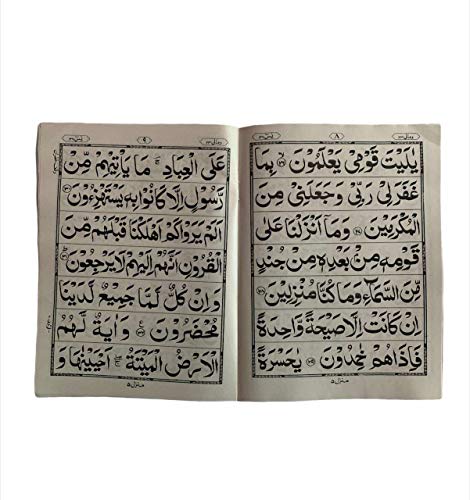 يٰلَيْتَ قَوْمِيْ يَعْلَمُوْنَ ۝٢٦ بِمَا
غَفَرَلِيْ رَبِّيْ وَجَعَلَنِيْ مِنَ
الْمُكْرَمِيْنَ ۝٢٧ وَمَاۤ اَنْزَلْنَا عَلٰى
قَوْمِهٖ مِنْۢ بَعْدِهٖ مِنْ جُنْدٍ
مِّنَ السَّمَآءِ وَمَا كُنَّا مُنْزِلِيْنَ ۝٢٨
اِنْ كَانَتْ اِلَّا صَيْحَةً وَّاحِدَةً
فَاِذَاهُمْ خٰمِدُوْنَ ۝٢٩ يٰحَسْرَةً
منزل ۵
۹
عَلَى الْعِبَادِ ۚ مَا يَاْتِيْهِمْ مِّنْ
رَّسُوْلٍ اِلَّا كَانُوْا بِهٖ يَسْتَهْزِءُوْنَ ۝٣٠
اَلَمْ يَرَوْا كَمْ اَهْلَكْنَا قَبْلَهُمْ مِّنَ
الْقُرُوْنِ اَنَّهُمْ اِلَيْهِمْ لَا يَرْجِعُوْنَ ۝٣١
وَاِنْ كُلٌّ لَّمَّا جَمِيْعٌ لَّدَيْنَا
مُحْضَرُوْنَ ۝٣٢ وَاٰيَةٌ لَّهُمُ
الْاَرْضُ الْمَيْتَةُ ۚ اَحْيَيْنٰهَا وَ
منزل ۵